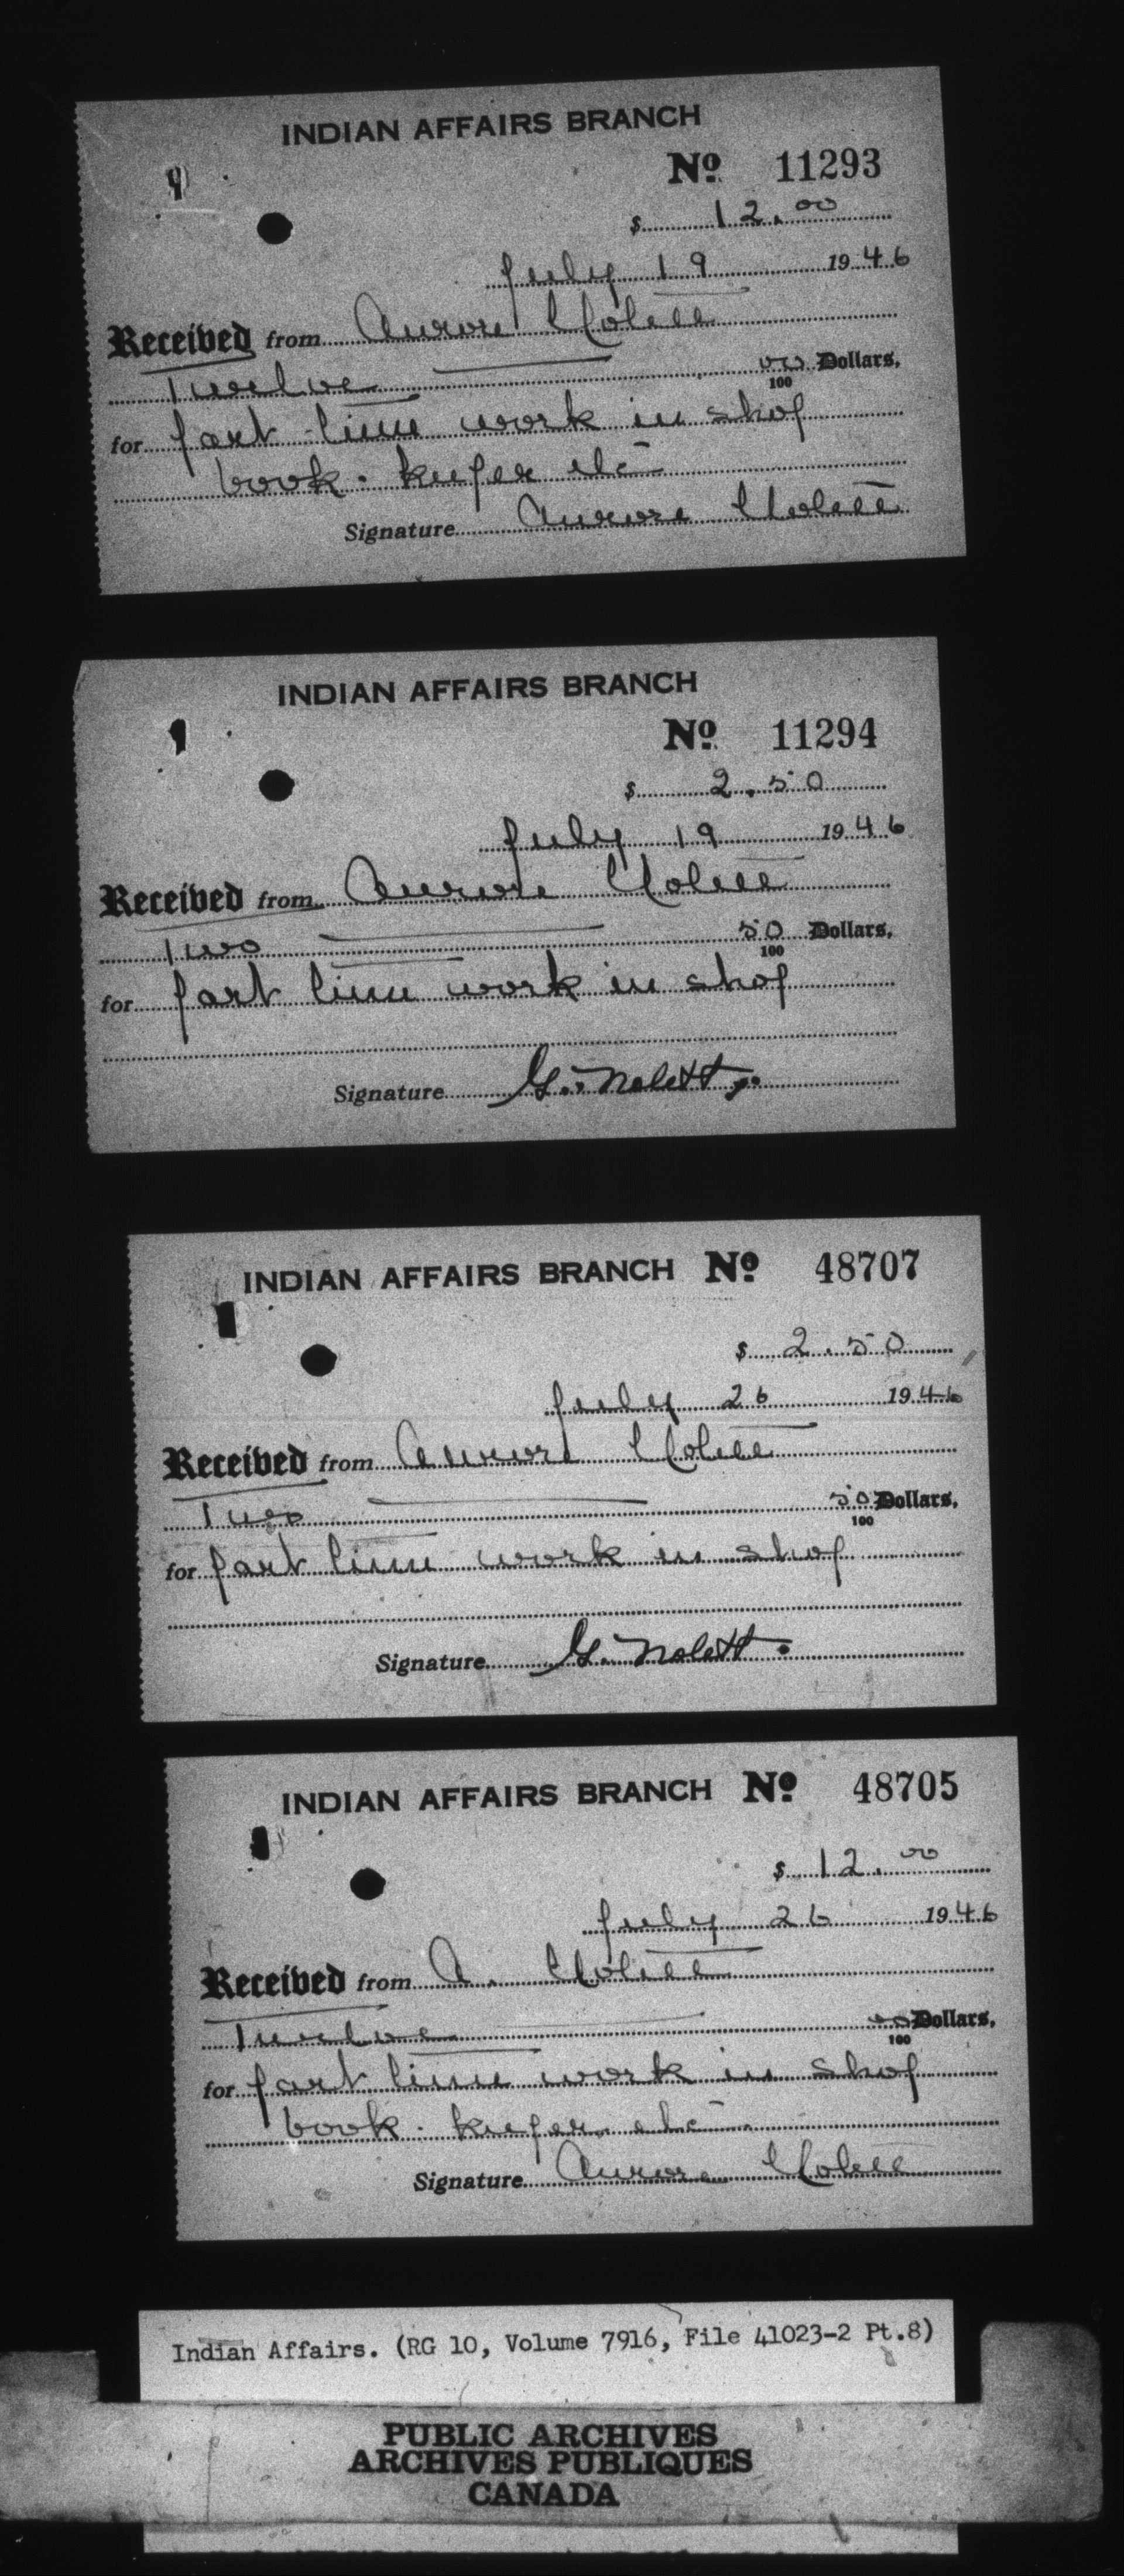 INDIAN AFFAIRS BRANCH
No. 11293
$ 12.00
July 19 1946
Received from Aurore Nolett
Twelve 00/100 Dollars,
for part time work in shop
book-keeper etc
Signature Aurore Nolett
INDIAN AFFAIRS BRANCH
No. 11294
$ 2.50
July 19 1946
Received from Aurore Nolett
Two 50/100 Dollars,
for part time work in shop
Signature G. Nolett.
INDIAN AFFAIRS BRANCH No. 48707
$ 2.50
July 26 1946
Received from Aurore Nolett
Two 50/100 Dollars,
for part time work in shop
Signature G. Nolett.
INDIAN AFFAIRS BRANCH No. 48705
$ 12.00
July 26 1946
Received from A. Nolett
Twelve 00/100 Dollars,
for part time work in shop
book-keeper etc
Signature Aurore Nolett
Indian Affairs. (RG 10, Volume 7916, File 41023-2 Pt.8)
PUBLIC ARCHIVES
ARCHIVES PUBLIQUES
CANADA